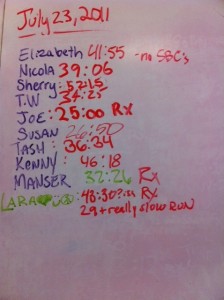 July 23, 2011
Elizabeth 41:55 - no SBC's
Nicola 39:06
Sherry: 52:15
T.W 34:23
JOE: 25:00 Rx
SUSAN 26:50
TASH: 36:34
KENNY: 46:18
MANSER 32:26 Rx
LARA 43:30 Rx
29 + really slow RUN